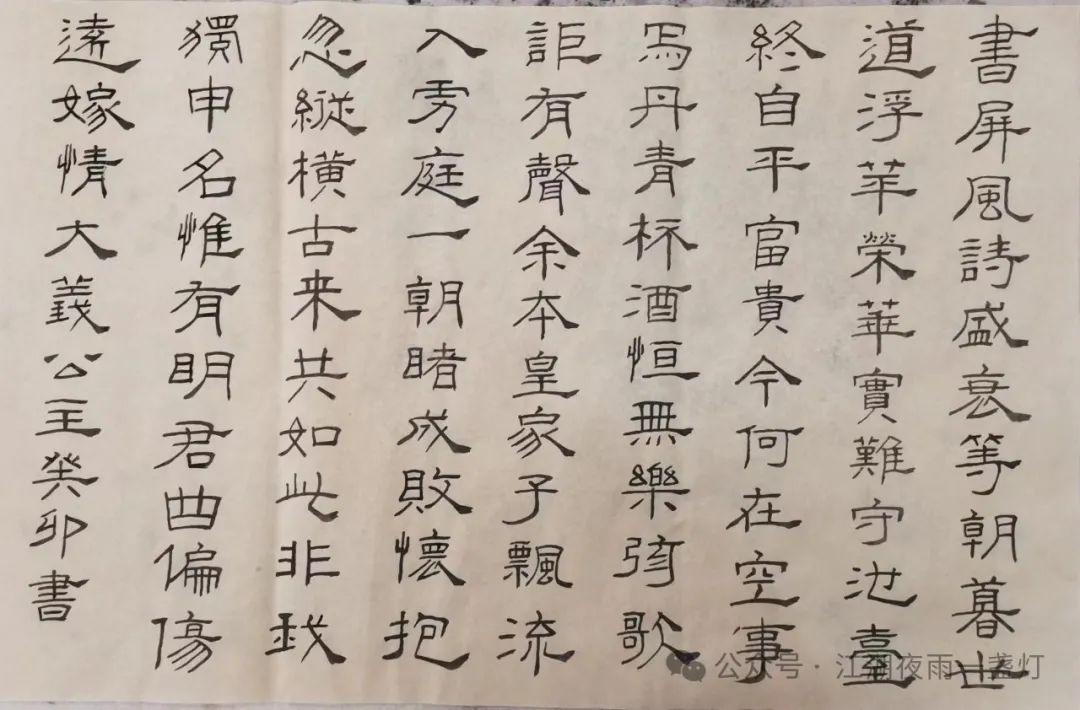 書屏風詩盛衰等朝暮世
道浮萍榮華實難守池臺
終自平富貴今何在空事
寫丹青杯酒恒無樂弦歌
詎有聲余本皇家子飄流
入虜庭一朝睹成敗懷抱
忽縱橫古来共如此非我
獨申名惟有明君曲偏傷
遠嫁情大義公主癸卯書
公众号·江湖夜雨一盏灯